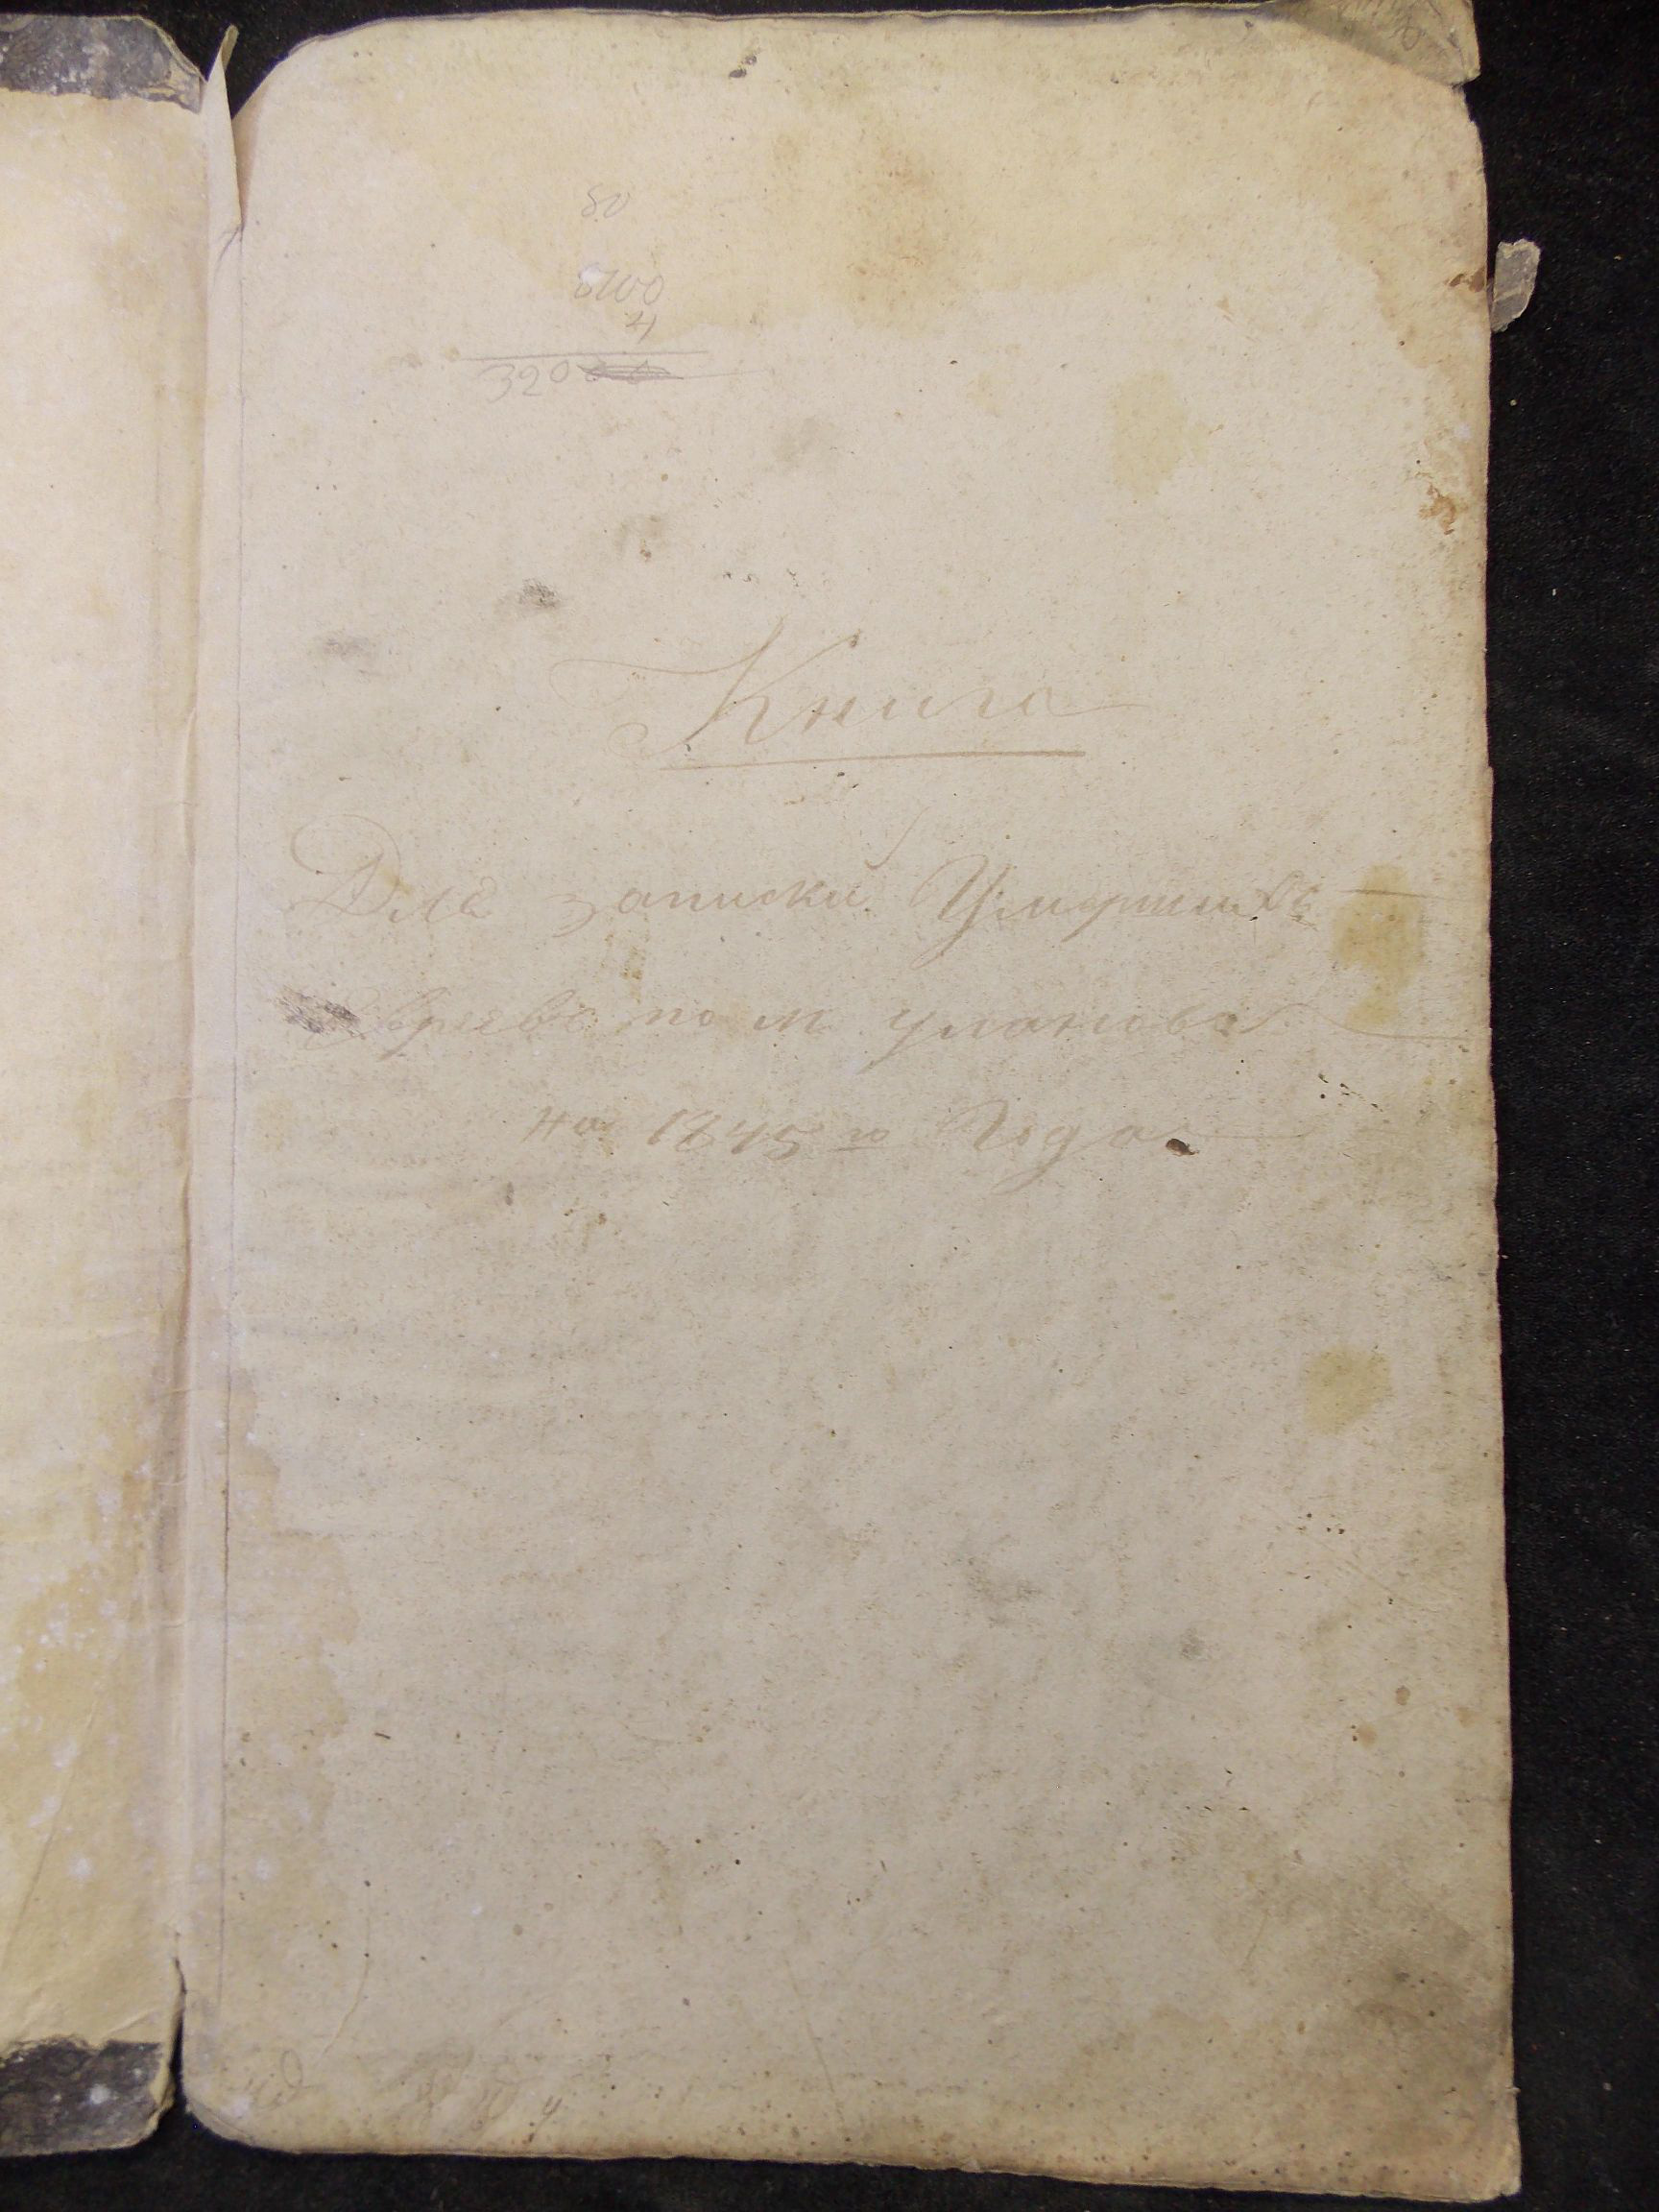 80
8200
4
32000
Книга
Для записки Умершихъ
Евреевъ по м. Уманова
на 1845 го Года